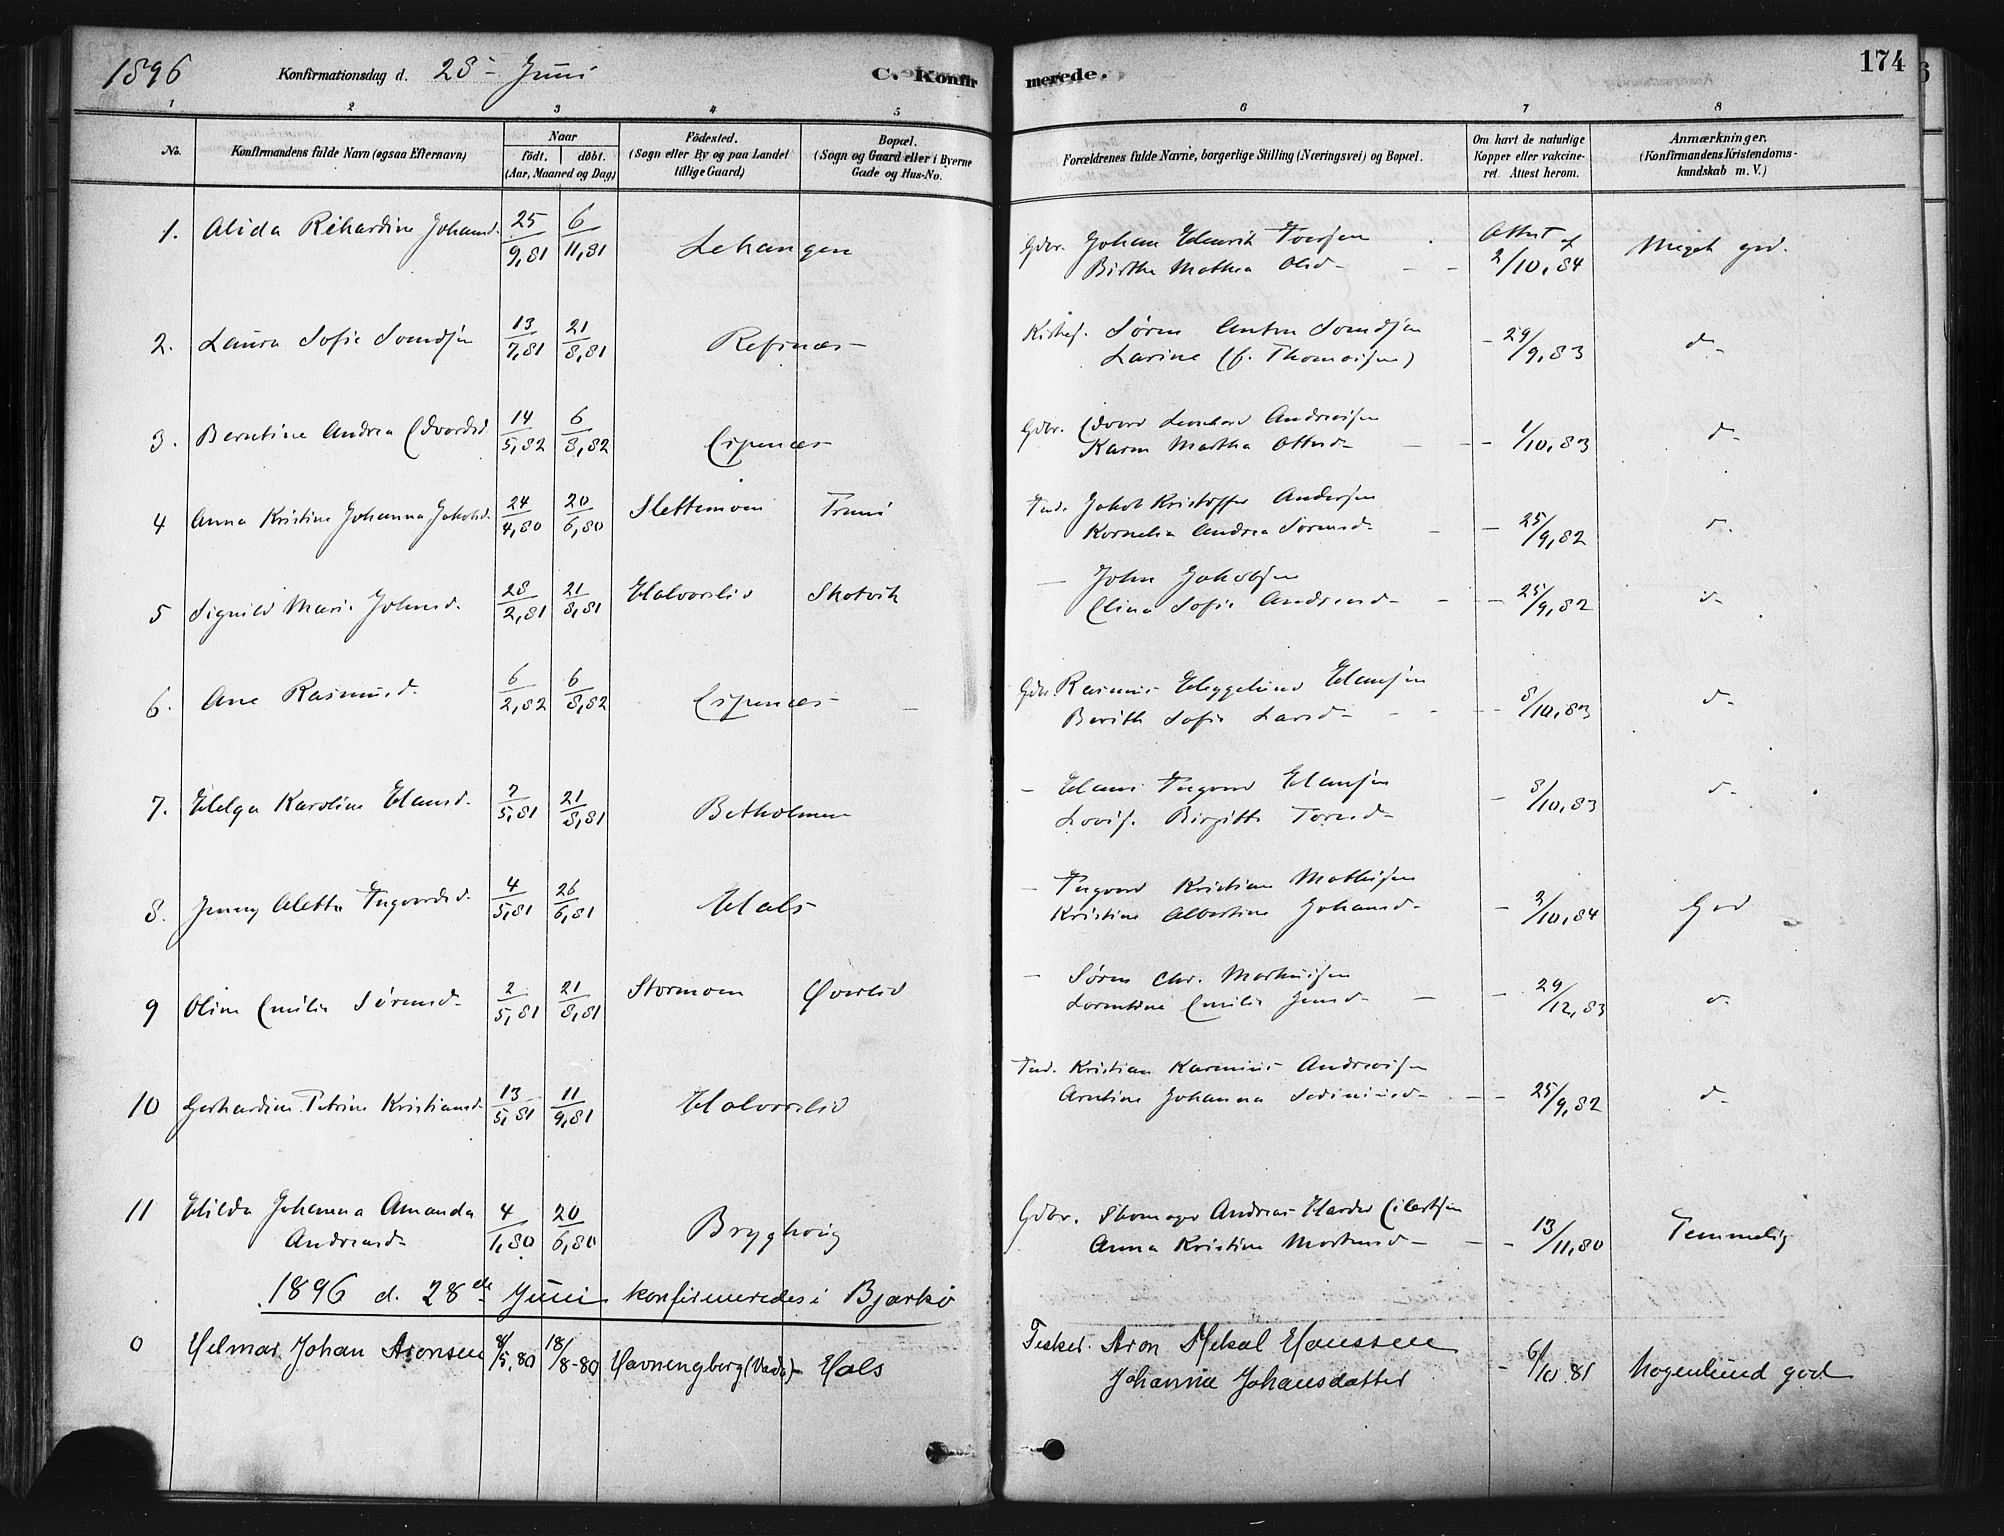 1896 Konfirmationsdag d. 28- Juni C. Konfirmerede. 174
1 2 3 4 5 6 7 8
No. Konfirmandens fulde Navn (ogsaa Efternavn) Naar födt. döbt. (Aar, Maaned og Dag) Födested. (Sogn eller By og paa Landet tillige Gaard) Bopæl. (Sogn og Gaard eller i Byerne Gade og Hus-No. Forældrenes fulde Navne, borgerlige Stilling (Næringsvei) og Bopæl. Om havt de naturlige Kopper eller vakcineret. Attest herom. Anmærkninger. (Konfirmandens Kristendomskundskab m. V.)
1. Alida Rikardine Johansd. 25/9,81 6/11,81 Lekangen Gdbr. Johan Henrik Attest af 2/10,84 Meget god.
Birthe Mathea Olsd-
2. Laura Sofie 13/7,81 21/8,81 Refsnæs Søren Anton - 29/9,83 d-
Larine (f. Thomassen)
3. Berntine Andrea Edvardsd. 14/5,82 6/8,82 Espenæs Gdbr. Edvard Leonhard Andreassen - 1/10,83 d-
Karen Martha Ottesd-
4 Anna Kristine Johanna Jakobsd. 24/4,80 20/6,80 Slettemoen Jakob Kristoffer Andersen - 25/9,82 d-
Kornelia Andrea Sørensd-
5 Signild Marie Johnsd. 28/2,81 21/8,81 Halvorslid Skotvik - John Jakobsen - 25/9,82 d-
Elina Sofie Andreasd-
6. Ane Rasmusd. 6/2,82 6/8,82 Espenæs - Gdbr. Rasmus Heggelund Hansen - 8/10,83 d-
Berith Sofie Larsd-
7. Helga Karoline Hansd. 7/5,81 21/8,81 Betholmen - Hans Ingvard Hansen - 8/10,83 d-
Lovise Birgitte Toresd-
8. Jenny Aletta Ingvardsd. 4/5,81 26/6,81 Hals - Ingvard Kristian Mathisen - 2/10,84 God
Kristine Albertine Johansd-
9 Oline Emilie Sørensd- 2/5,81 21/8,81 Stormoen Øverlid - Søren Chr. Markusen - 29/12,83 d-
Lorentine Emilie Jensd-
10 Gerhardine Petrine Kristiansd. 13/5,81 11/9,81 Halvorslid Ind. Kristian Andreassen - 25/9,82 d-
Arntine Johanna
11 Hilda Johanna Amanda 4/1,80 20/6,80 Gdbr. Andreas Harder Eilertsen - 13/11,80 Temmelig
Andreasd- Anna Kristine Mortensd-
1896 d. 28de Juni konfirmeredes i Bjarkø
0 Helmar Johan Aronsen 8/5.80 18/8-80 Havnengberg (Vadsø)- Hals Fisker. Aron Mekal Hanssen - 6/10 81 Nogenlund god
Johanna Johansdatter